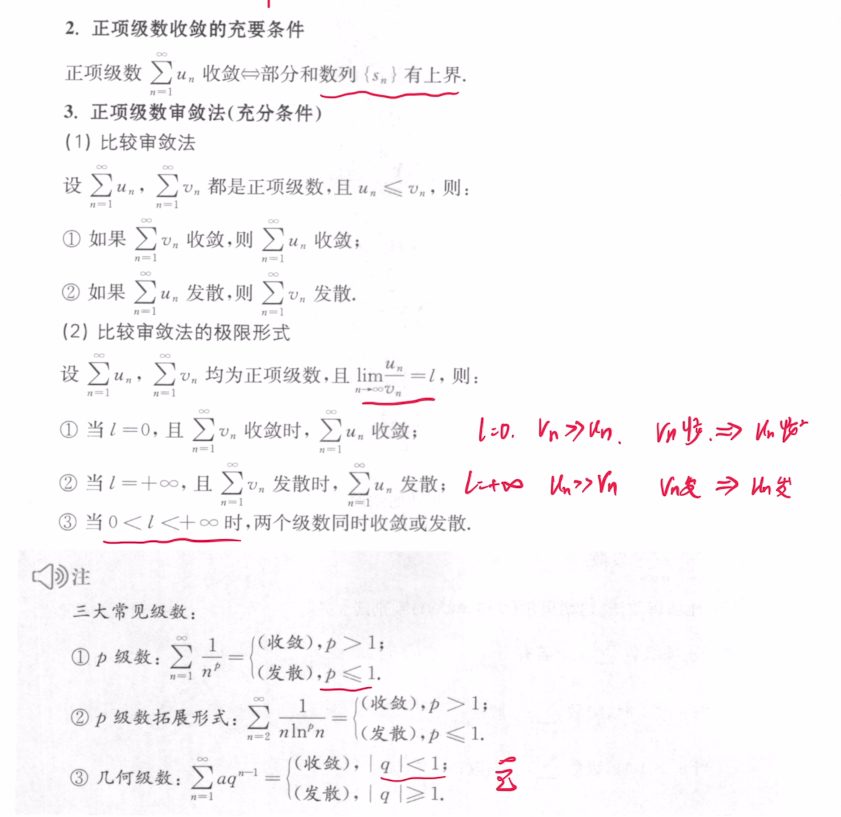 2. 正项级数收敛的充要条件
正项级数 ∑_{n=1}^{∞} u_n 收敛⇔部分和数列{s_n}有上界.
3. 正项级数审敛法(充分条件)
(1) 比较审敛法
设 ∑_{n=1}^{∞} u_n, ∑_{n=1}^{∞} v_n 都是正项级数,且 u_n ⩽ v_n,则:
① 如果 ∑_{n=1}^{∞} v_n 收敛,则 ∑_{n=1}^{∞} u_n 收敛;
② 如果 ∑_{n=1}^{∞} u_n 发散,则 ∑_{n=1}^{∞} v_n 发散.
(2) 比较审敛法的极限形式
设 ∑_{n=1}^{∞} u_n, ∑_{n=1}^{∞} v_n 均为正项级数,且 lim_{n→∞} u_n/v_n = l,则:
① 当 l=0,且 ∑_{n=1}^{∞} v_n 收敛时, ∑_{n=1}^{∞} u_n 收敛; l=0. Vn>>Un. Vn收.⇒Un收
② 当 l=+∞,且 ∑_{n=1}^{∞} v_n 发散时, ∑_{n=1}^{∞} u_n 发散; l=+∞ Un>>Vn Vn发 ⇒ Un发
③ 当 0<l<+∞ 时,两个级数同时收敛或发散.
注
三大常见级数:
① p 级数: ∑_{n=1}^{∞} 1/n^p = {(收敛), p>1; (发散), p⩽1.
② p 级数拓展形式: ∑_{n=2}^{∞} 1/(n ln^p n) = {(收敛), p>1; (发散), p⩽1.
③ 几何级数: ∑_{n=1}^{∞} aq^{n-1} = {(收敛), |q|<1; (发散), |q|⩾1.